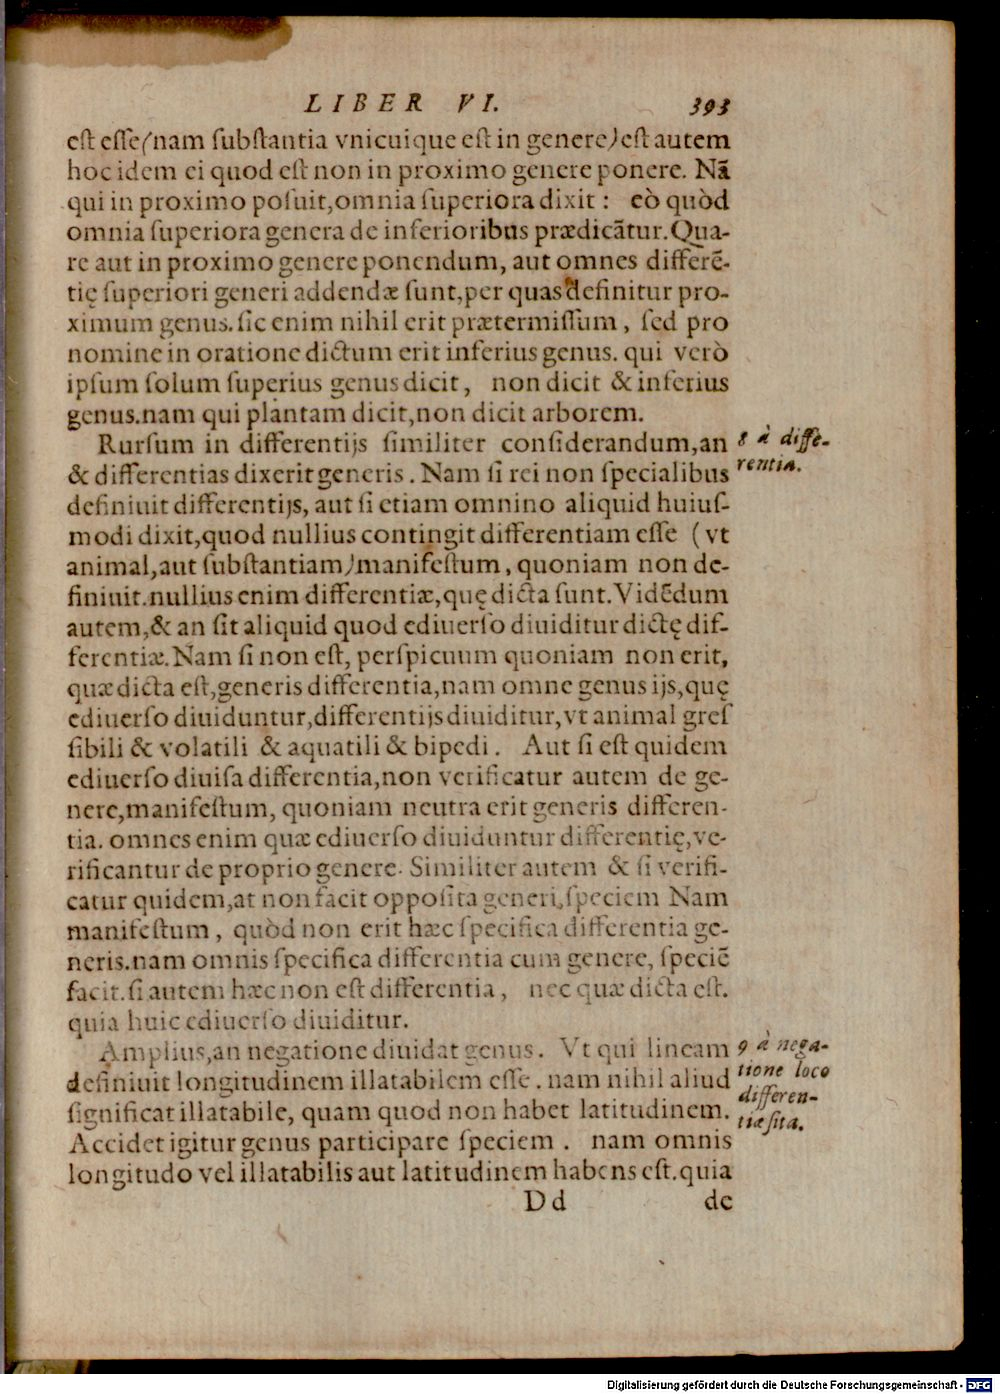 LIBER VI. 393
est esse (nam substantia vnicuique est in genere) est autem
hoc idem ei quod est non in proximo genere ponere. Nā
qui in proximo posuit, omnia superiora dixit: eò quòd
omnia superiora genera de inferioribus prædicātur. Qua-
re aut in proximo genere ponendum, aut omnes differē-
tię superiori generi addendæ sunt, per quas definitur pro-
ximum genus. sic enim nihil erit prætermissum, sed pro
nomine in oratione dictum erit inferius genus. qui verò
ipsum solum superius genus dicit, non dicit & inferius
genus. nam qui plantam dicit, non dicit arborem.
Rursum in differentijs similiter considerandum, an
8 à diffe-
& differentias dixerit generis. Nam si rei non specialibus
rentia.
definiuit differentijs, aut si etiam omnino aliquid huius-
modi dixit, quod nullius contingit differentiam esse (vt
animal, aut substantiam) manifestum, quoniam non de-
finiuit. nullius enim differentiæ, quę dicta sunt. Vidēdum
autem, & an sit aliquid quod ediuerso diuiditur dictę dif-
ferentiæ. Nam si non est, perspicuum quoniam non erit,
quæ dicta est, generis differentia, nam omne genus ijs, quę
ediuerso diuiduntur, differentijs diuiditur, vt animal gres
sibili & volatili & aquatili & bipedi. Aut si est quidem
ediuerso diuisa differentia, non verificatur autem de ge-
nere, manifestum, quoniam neutra erit generis differen-
tia. omnes enim quæ ediuerso diuiduntur differentię, ve-
rificantur de proprio genere. Similiter autem & si verifi-
catur quidem, at non facit opposita generi, speciem Nam
manifestum, quòd non erit hæc specifica differentia ge-
neris. nam omnis specifica differentia cum genere, speciē
facit. si autem hæc non est differentia, nec quæ dicta est.
quia huic ediuerso diuiditur.
Amplius, an negatione diuidat genus. Vt qui lineam
9 à nega-
definiuit longitudinem illatabilem esse. nam nihil aliud
tione loco
significat illatabile, quam quod non habet latitudinem.
differen-
tiæ sita.
Accidet igitur genus participare speciem. nam omnis
longitudo vel illatabilis aut latitudinem habens est. quia
Dd de
Digitalisierung gefördert durch die Deutsche Forschungsgemeinschaft - DFG